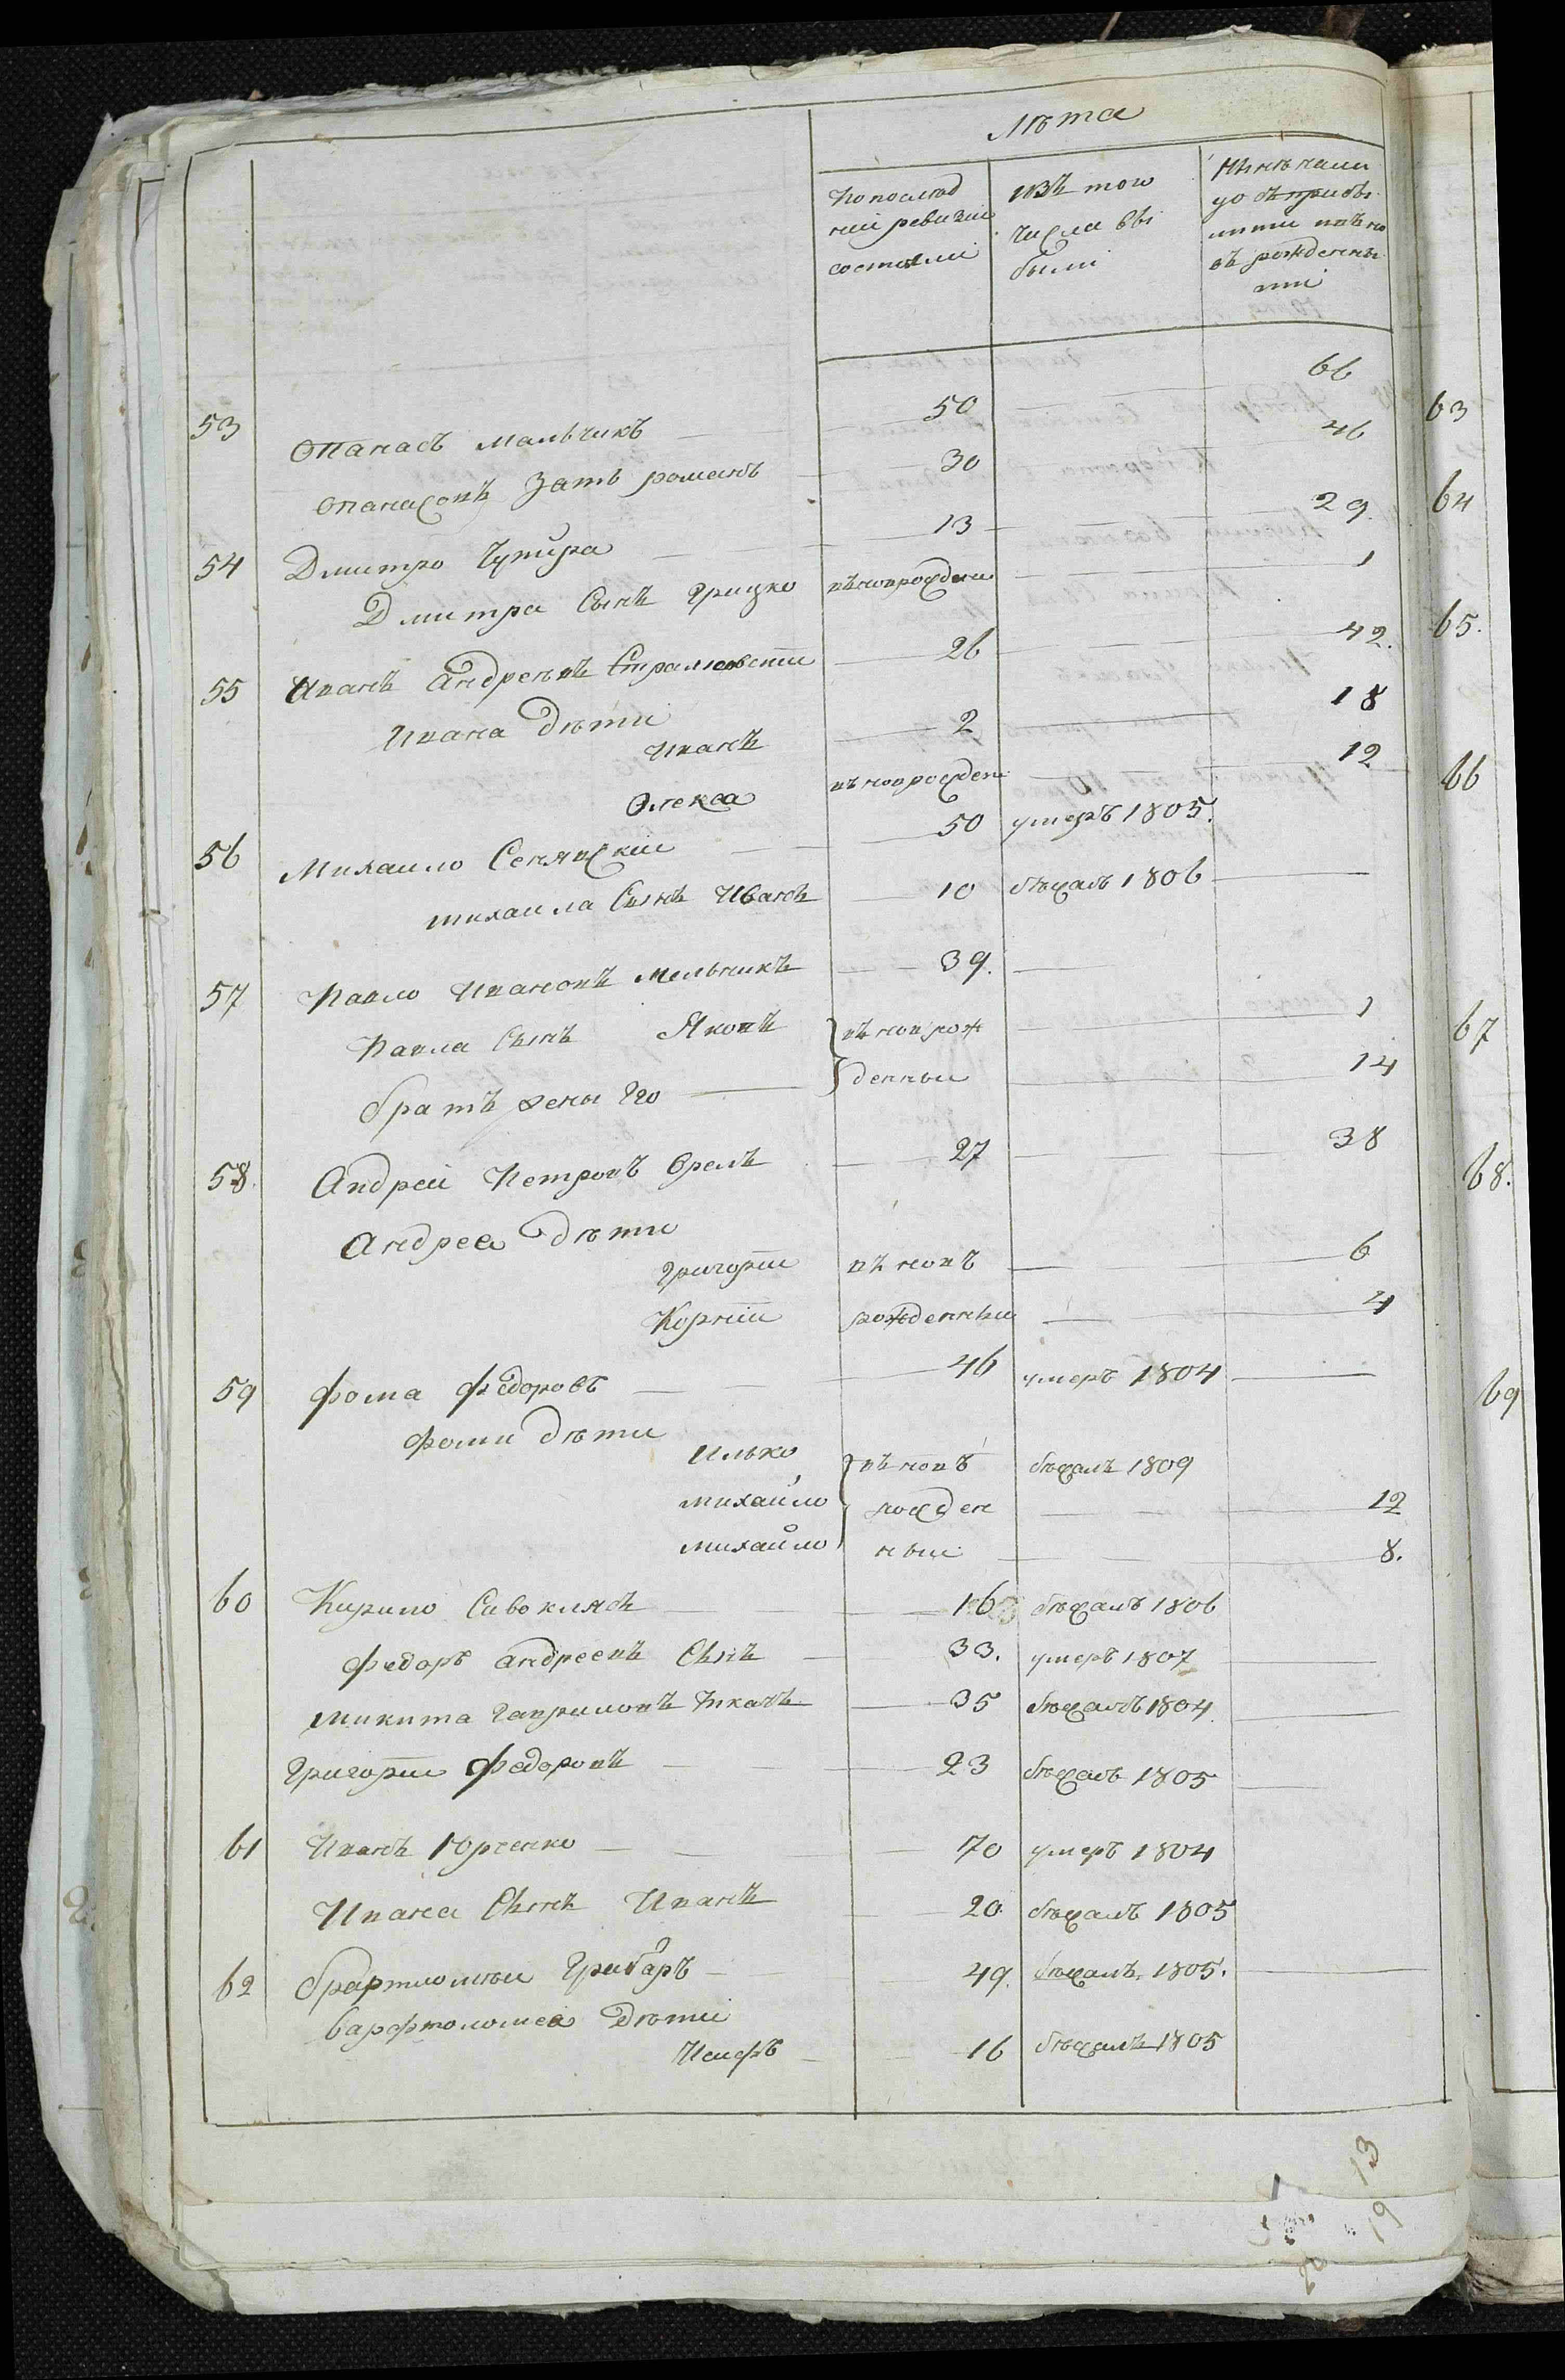 Лѣта
По послѣд
ней ревизіи
состояли
изъ того
числа вы
были
Нынѣ на ли
цо съ прибы
лими внѣ но
въ рожденны
ми
53 Опанасъ Мальчикъ 50 66
Опанасовъ Зять романъ 30 46
54 Дмитро Чупира 13 29
Дмитра Сынъ Грицко въновърожден 1
55 Иванъ Андреевъ 26 42.
Ивана дѣти
Иванъ 2 18
Олекса въновърожден 12
56 Михаило 50 умеръ 1805.
михаила Сынъ Иванъ 10 бѣжалъ 1806
57 Павло Ивановъ Мельникъ 39.
Павла Сынъ Яковъ въновърож 1
братъ жены его денныи 14
58. Андрей Петровъ Орелъ 27 38
Андрея дѣти
Григорій въ новъ 6
Корній рожденныи 4
59 Фома Федоровъ 46 умеръ 1804
Фоми дѣти
Илько въ новъ бѣжалъ 1809
михайло рожден 12
михайло ныи 8.
60 Кирило Савоклясъ 16 бѣжалъ 1806
Федоръ андреевъ Сынъ 33. умеръ 1807
Микита Гавриловъ Ткачъ 35 бѣжалъ 1804
Григорій Федоровъ 23 бѣжалъ 1805
61 Иванъ Юрченко 70 умеръ 1804
Ивана Сынъ Иванъ 20 бѣжалъ 1805
62 Грибаръ 49. бѣжалъ 1805.
Варфтоломея Дѣти
16 бѣжалъ 1805
63
64
65.
66
67
68.
69
13
19